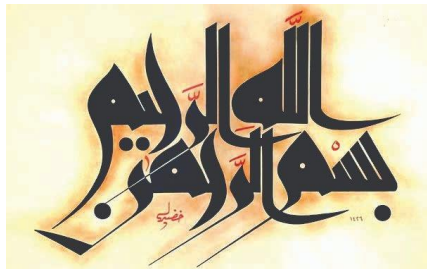 بسم الله الرحمن الرحيم
١٤٢٦